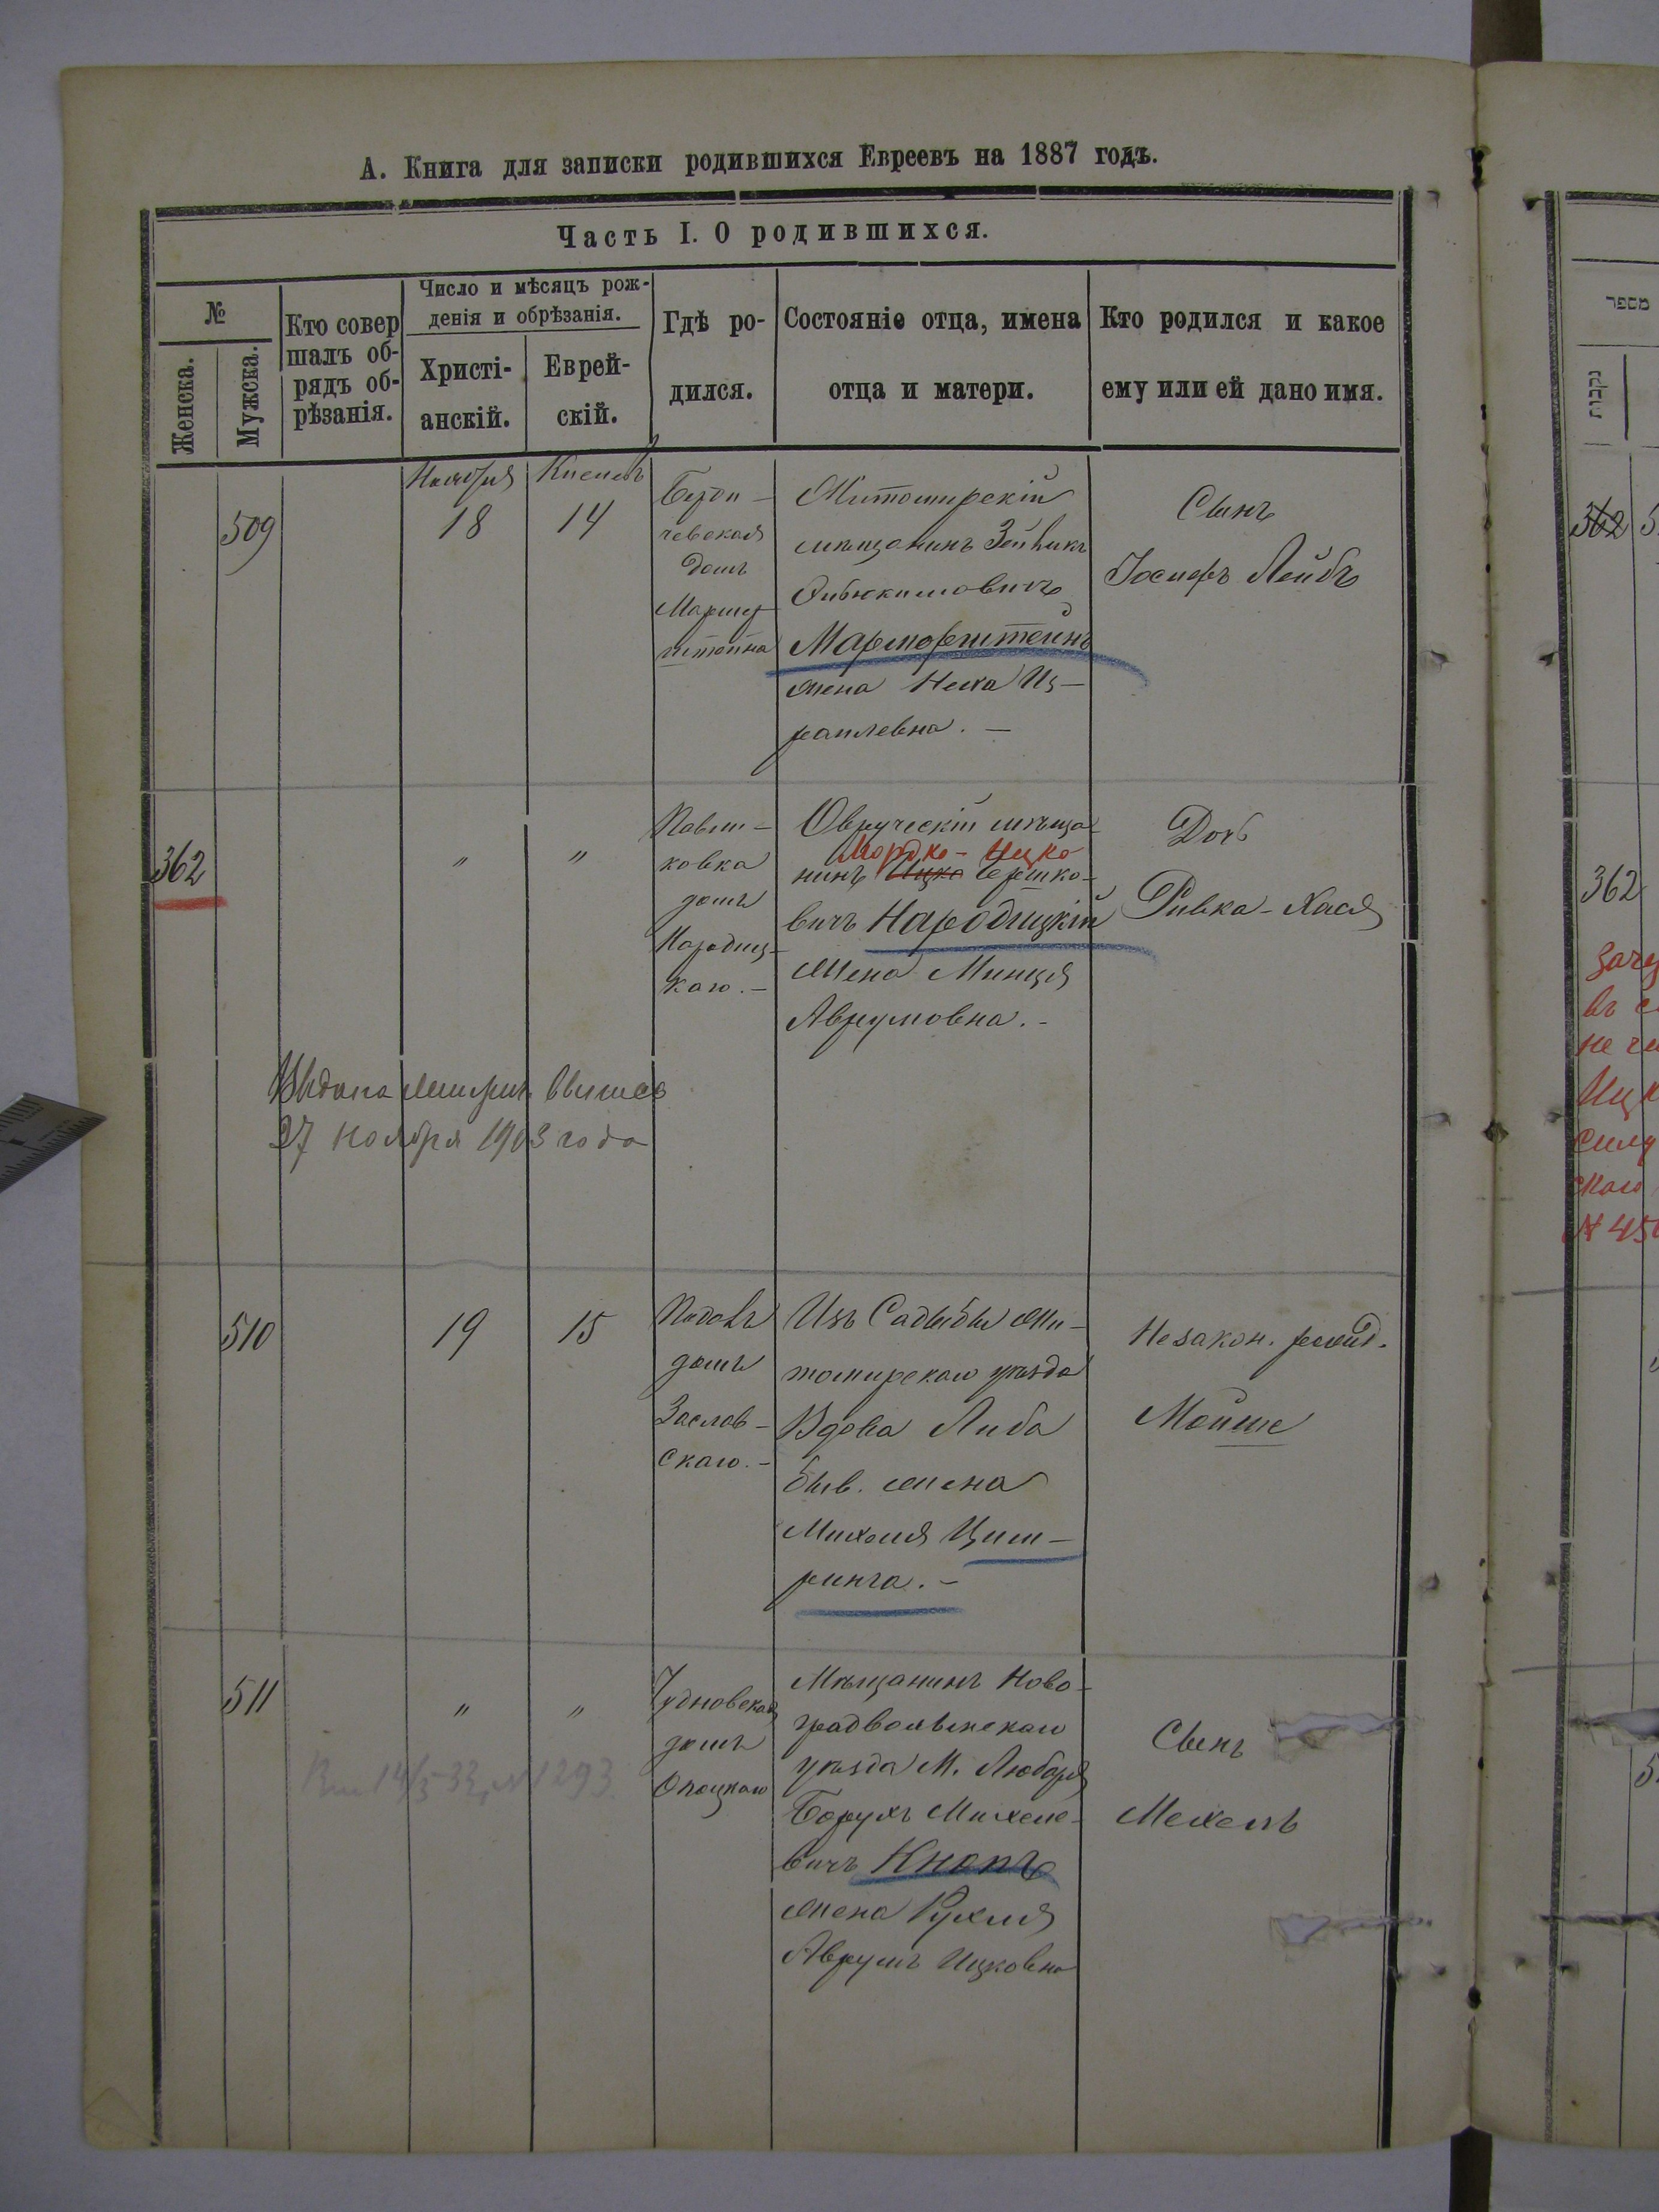 А. Книга для записки родившихся Евреевъ на 1887 годъ.
Часть I. О родившихся.
№
Женска.
Мужска.
Кто совер
шалъ об-
рядъ об-
рѣзанія.
Число и мѣсяцъ рож-
денія и обрѣзанія.
Христі-
анскій.
Еврей-
скій.
Гдѣ ро-
дился.
Состояніе отца, имена
отца и матери.
Кто родился и какое
ему или ей дано имя.
509
Ноября
18
Кислевъ
14
чевская
домъ
штейна
Житомирскій
мѣщанинъ
Марморштейнъ
жена Неха Из-
раилевна. —
Сынъ
Іосифъ Лейбъ
362
"
"
Павли-
ковка
домъ
Народиц-
каго. —
Овручскій мѣща-
Мордко - Ицко
нинъ Ицко Гершко-
вичъ Народицкій
жена Минця
Аврумовна. -
Дочь
Ривка - Хася
Выдана метрич. выпись
27 ноября 1903 года
510
19
15
Подолъ
домъ
Заслав-
скаго. -
Изъ Садыбы Жи-
томирскаго уѣзда
Вдова Либа
быв. жена
Михеля Цим-
ринга. -
Незакон. рожд.
Мойше
511
"
"
Чудновская
домъ
Опоцкаго
Мѣщанинъ Ново-
градволынскаго
уѣзда М. Любаря
Борухъ Михеле-
вичъ Кнопъ
жена Рухля
Аврумъ Ицковна
Сынъ
Мехель
1293
מספר
נקבות
362
362
въ
не
№ 45